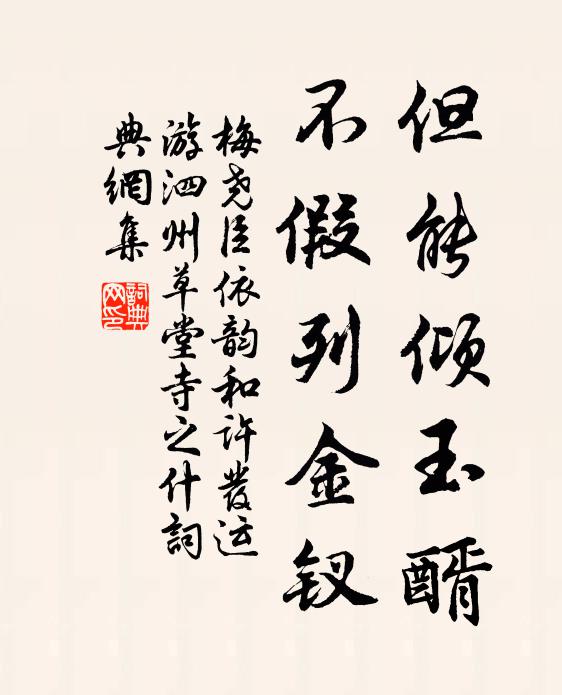 但能倾玉醑
不假列金钗
梅尧臣依韵和许发运
游泗州草堂寺之什词
典網集
詞典
网印